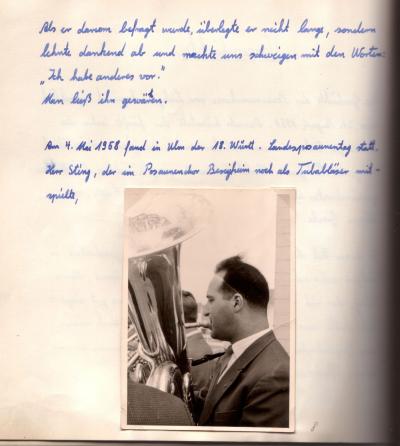 Als er davon befragt wurde, überlegte er nicht lange, sondern
lehnte dankend ab und machte uns schweigen mit den Worten:
„Ich habe anderes vor."
Man ließ ihn gewähren.
Am 4. Mai 1958 fand in Ulm der 18. Württ. Landesposaunentag statt.
Herr Sting, der im Posaunenchor Besigheim noch als Tubabläser mit-
spielte,
8